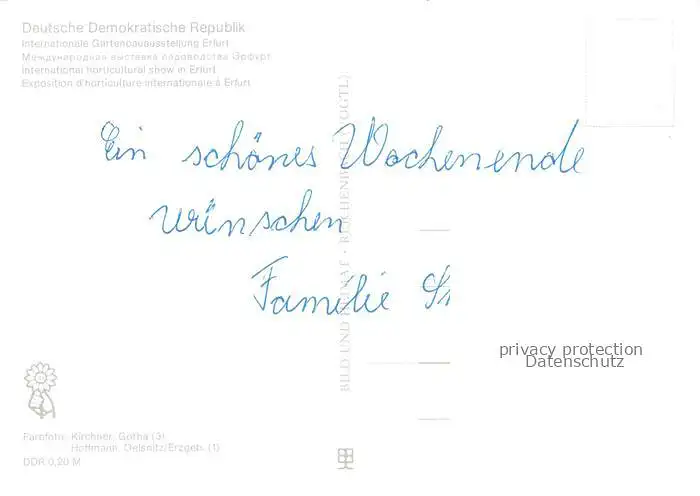 Deutsche Demokratische Republik
Internationale Gartenbauausstellung Erfurt
Международная выставка садоводства Эрфурт
International horticultural show in Erfurt
Exposition d'horticulture internationale à Erfurt
Ein schönes Wochenende
wünschen
Familie
BILD UND HEIMAT · REICHENBACH (VOGTL)
privacy protection
Datenschutz
Farbfoto: Kirchner, Gotha (3)
Hoffmann, Oelsnitz/Erzgeb. (1)
DDR 0,20 M